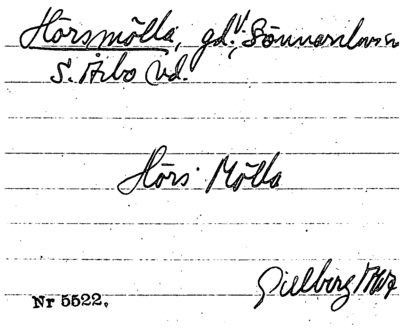 Hörsmölla, gd. v. Sönnarslövs sn
S. Åsbo hd.
Hörs Mölla
Gillberg 1767
Nr 5522.